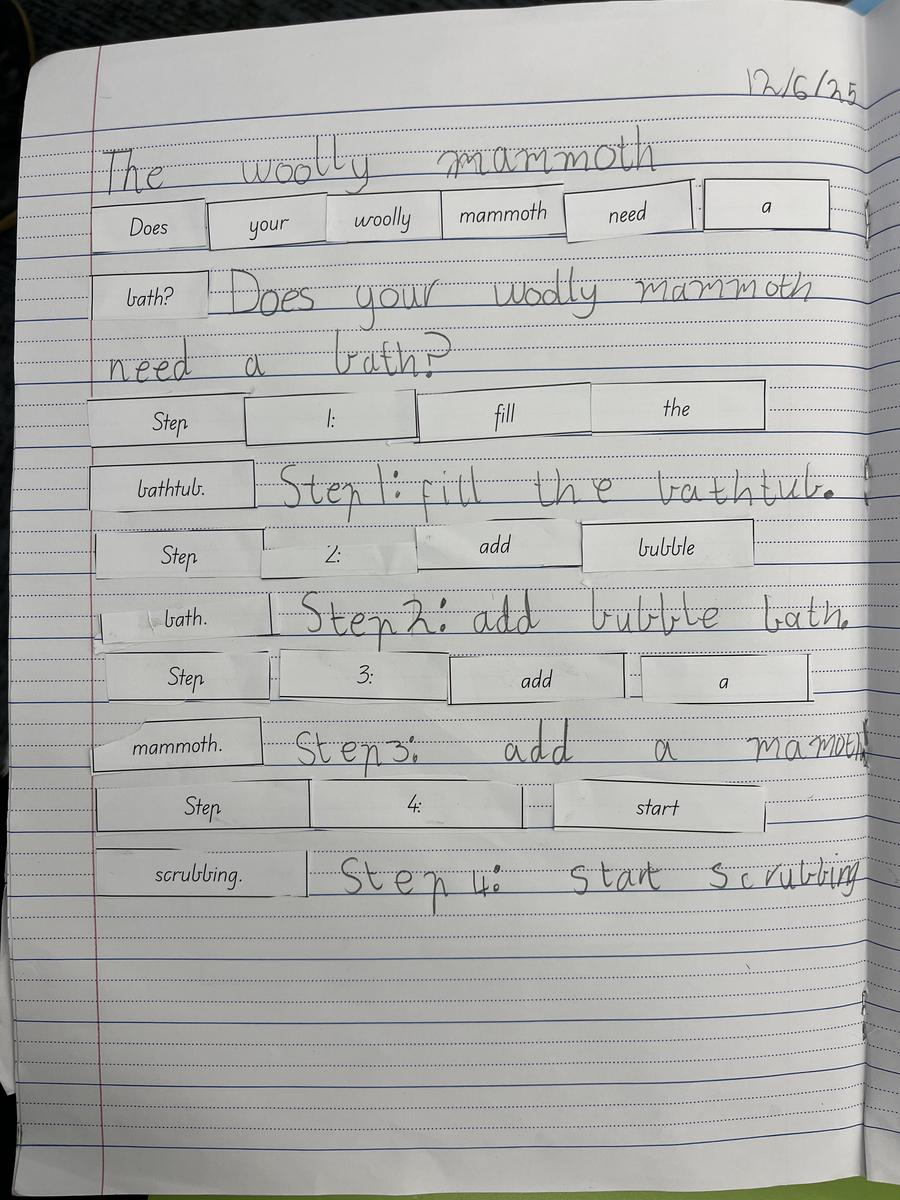 12/6/25
The woolly mammoth
Does your woolly mammoth need a
bath? Does your woolly mammoth
need a bath?
Step 1: fill the
bathtub. Step 1: fill the bathtub.
Step 2: add bubble
bath. Step 2: add bubble bath.
Step 3: add a
mammoth. Step 3: add a mamoth
Step 4: start
scrubbing. Step 4: start scrubbing